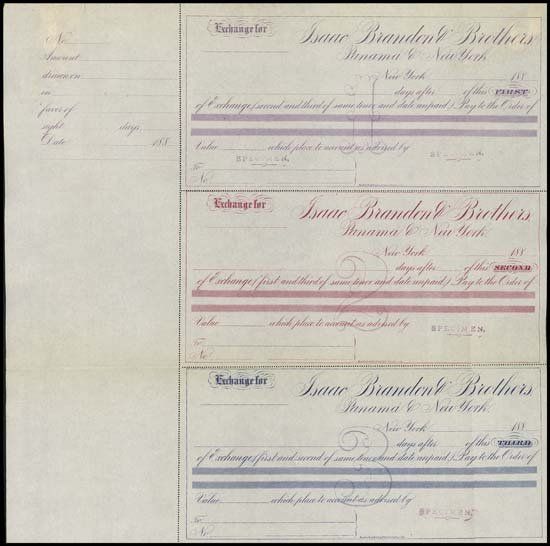 No
Amount
drawn on
in
favor of
sight days
Date 188
Exchange for
Isaac Brandon & Brothers
Panama & New York
New York 188
days after of this FIRST
of Exchange (second and third of same tenor and date unpaid) Pay to the Order of
Value which place to account as advised by
SPECIMEN.
SPECIMEN.
To
No
1
Exchange for
Isaac Brandon & Brothers
Panama & New York
New York 188
days after of this SECOND
of Exchange (first and third of same tenor and date unpaid) Pay to the Order of
Value which place to account as advised by
SPECIMEN.
To
No
2
Exchange for
Isaac Brandon & Brothers
Panama & New York
New York 188
days after of this THIRD
of Exchange (first and second of same tenor and date unpaid) Pay to the Order of
Value which place to account as advised by
SPECIMEN.
To
No
3